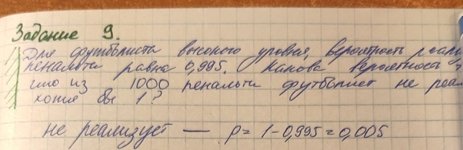 Задание 9.
Для футболиста высокого уровня, вероятность реали
пенальти равна 0,995. Какова вероятность т
что из 1000 пенальти футболист не реал
хотя бы 1?
не реализует — p = 1 - 0,995 = 0,005